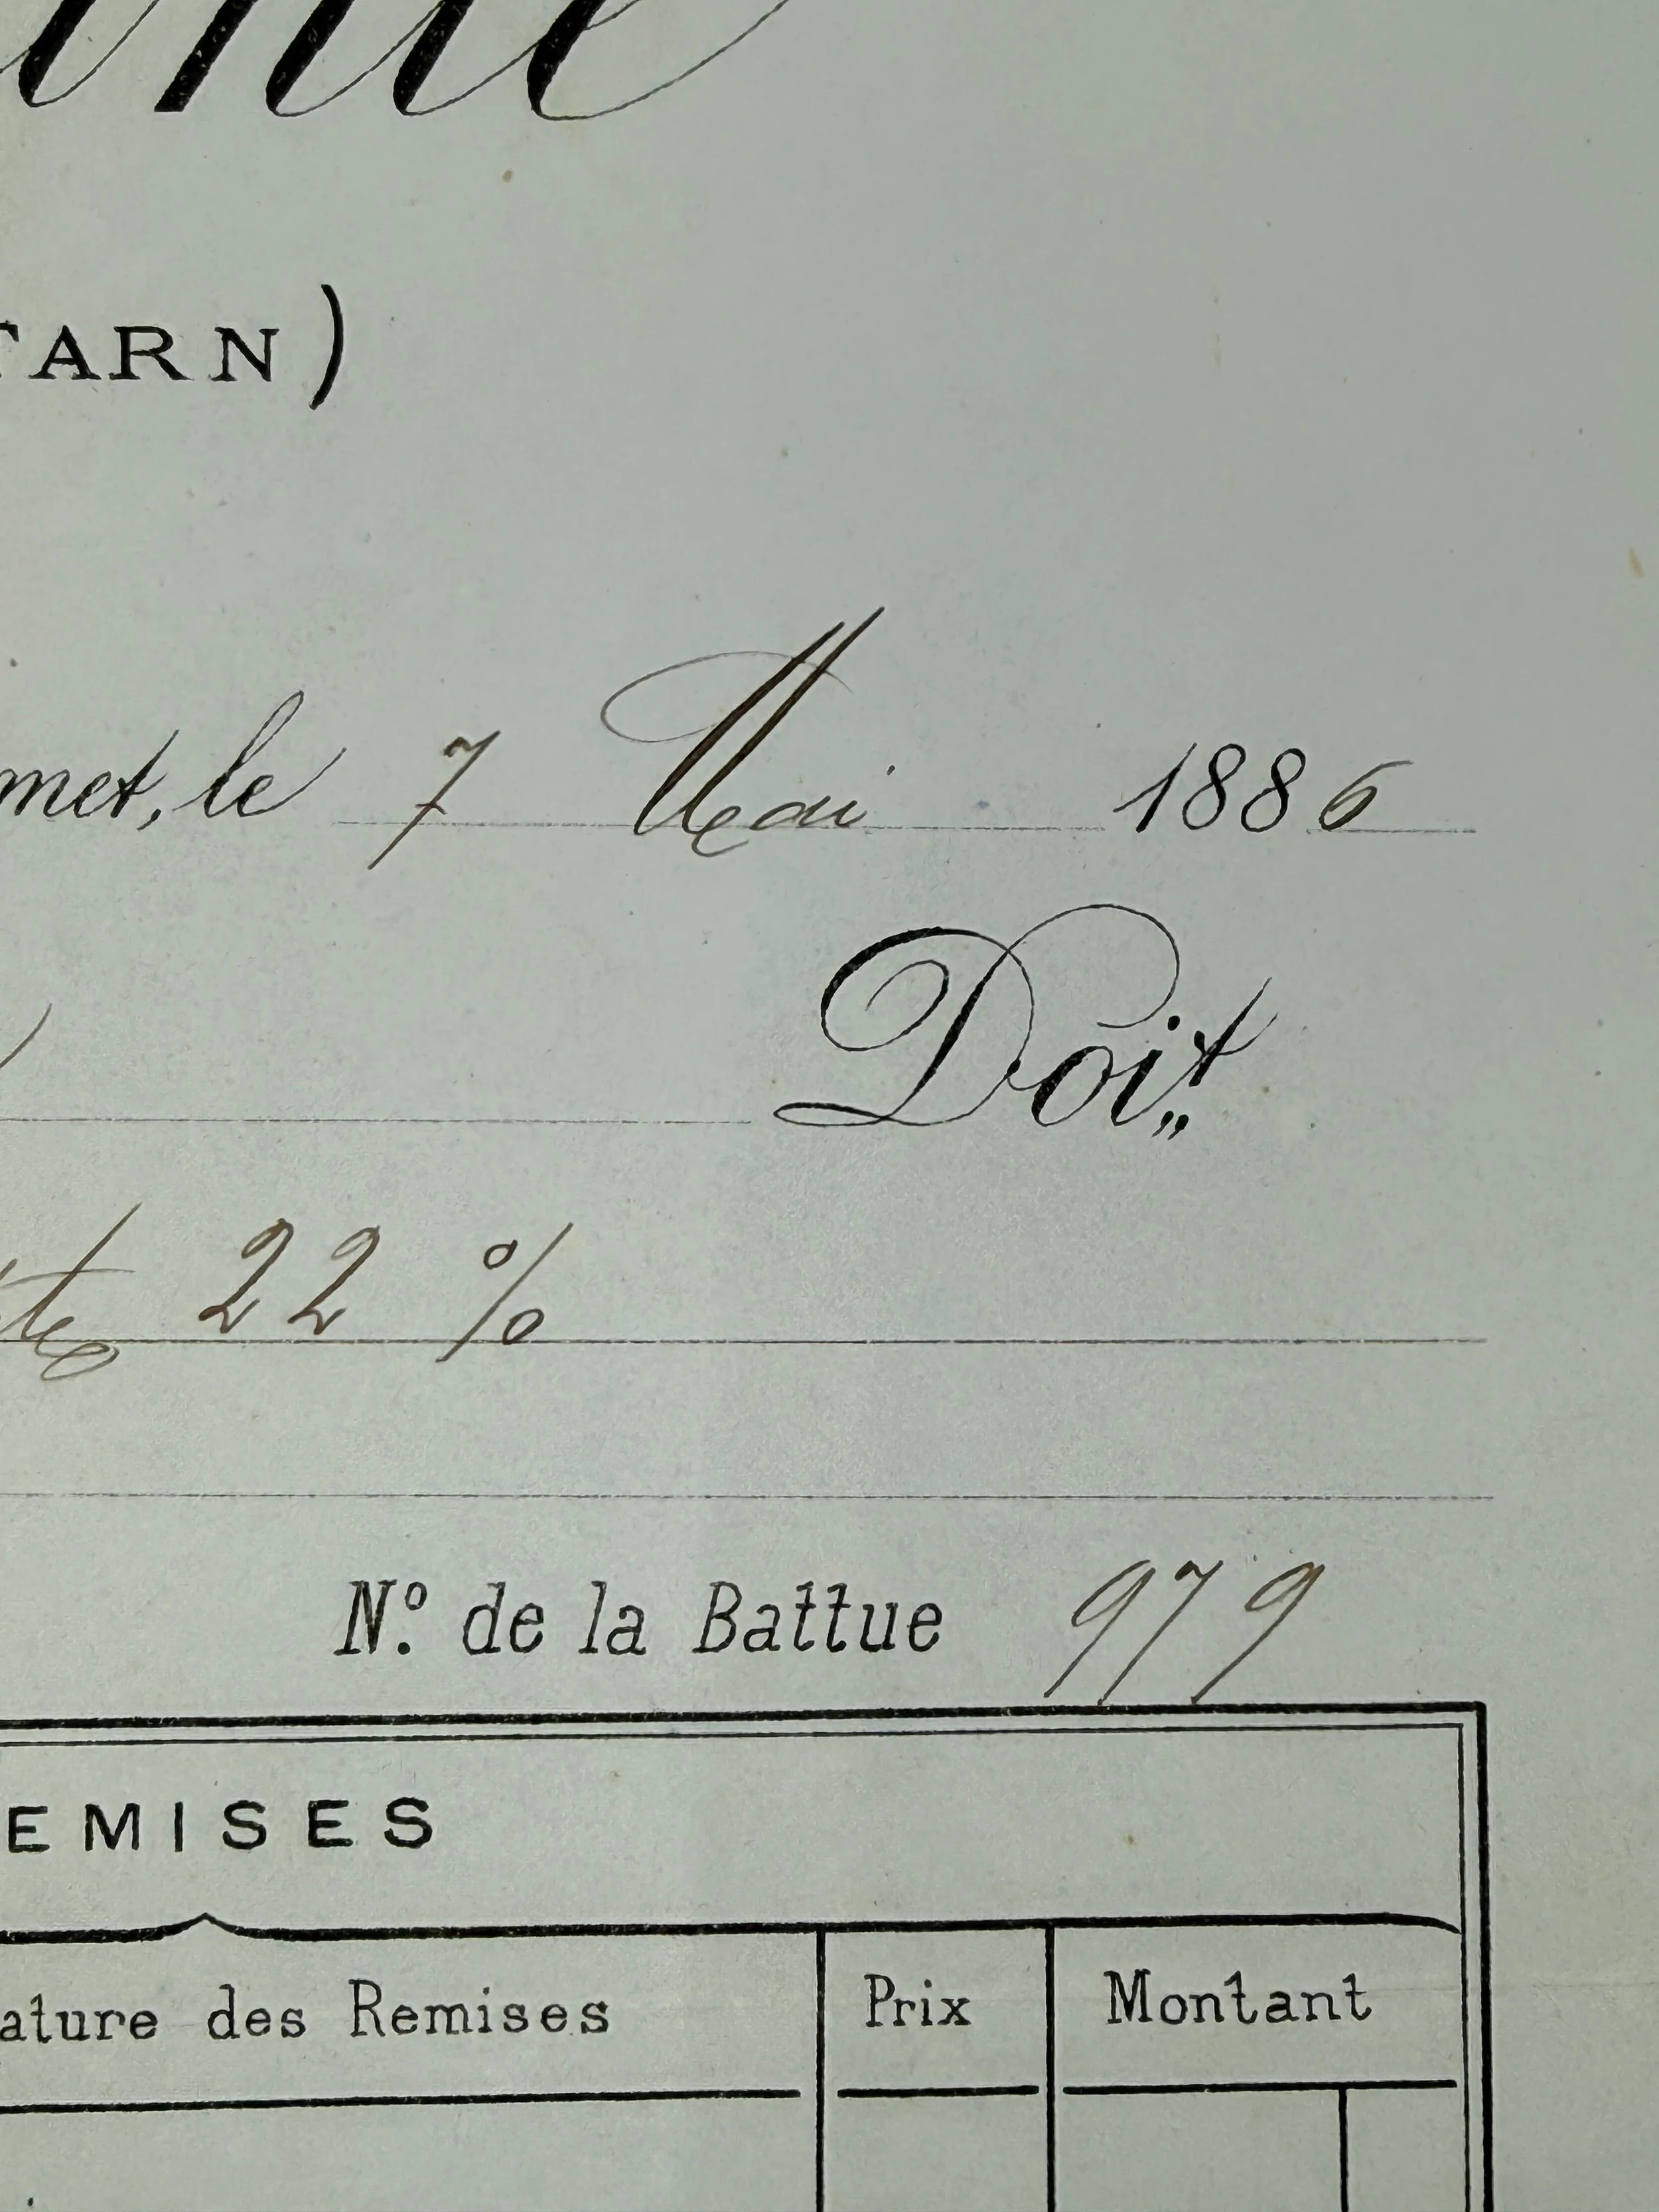 TARN)
met, le 7 Mai 1886
Doit,,
te 22 %
N° de la Battue 979
EMISES
ature des Remises Prix Montant